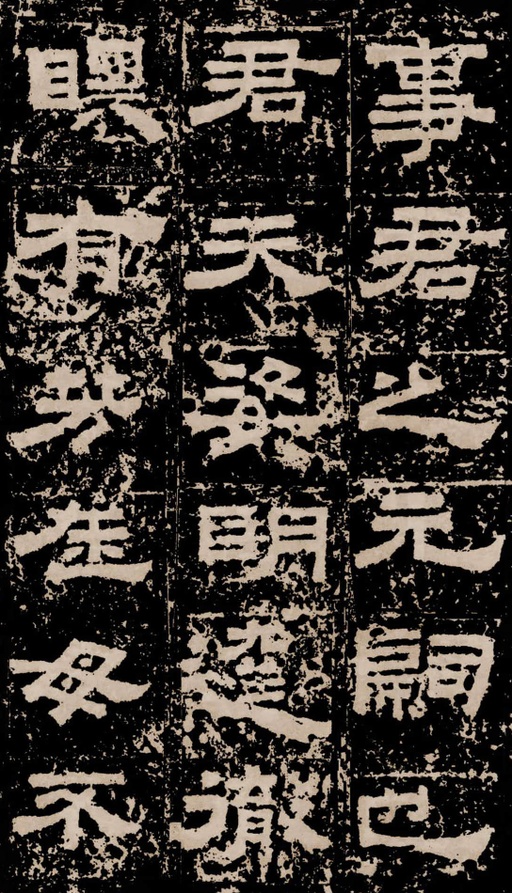 事君之元嗣也
君天姿明達徹
有芬在母不